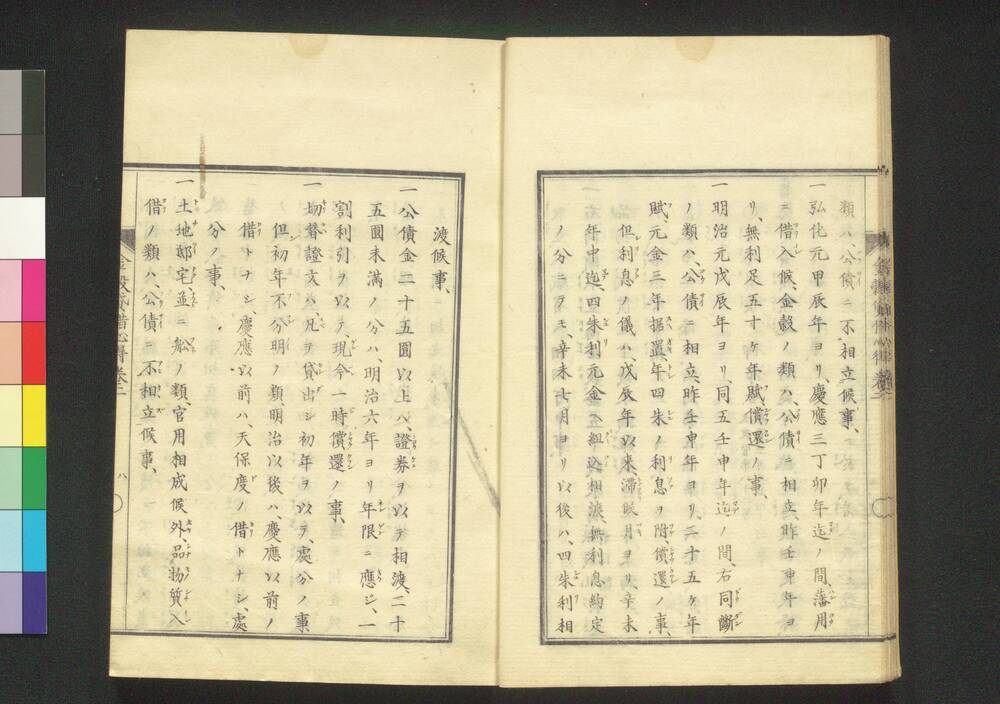 類ハ、公債ニ不相立候事、
一弘化元甲辰年ヨリ、慶應三丁卯年迄ノ間、藩用
ニ借入候、金穀ノ類ハ、公債ニ相立、昨壬申年ヨ
リ、無利足五十ケ年賦、償還ノ事、
一明治元戊辰年ヨリ、同五壬申年迄ノ間、右同斷
ノ類ハ、公債ニ相立、昨壬申年ヨリ、二十五ケ年
賦、元金三年据置、年四朱ノ利息ヲ附、償還ノ事、
但利息ノ儀ハ、戊辰年以来、滞賬月ヨリ、辛未
年中迄、四朱利元金ヘ組込、相渡、無利息約定
ノ分ニテモ、辛未七月ヨリ以後ハ、四朱利相
渡候事、
一公債金二十五圓以上ハ、證券ヲ以テ相渡、二十
五圓未満ノ分ハ、明治六年ヨリ年限ニ應シ、一
割利引ヲ以テ、現今一時償還ノ事、
一切替證文ハ、凡テ貸出シ初年ヲ以テ、處分ノ事
但初年不分明ノ類、明治以後ハ、慶應以前ノ
借トナシ、慶應以前ハ、天保度ノ借トナシ、處
分ノ事、
一土地邸宅並ニ船ノ類、官用相成候外、品物質入
借ノ類ハ、公債ニ不相立候事、
金穀貸借心得 巻二
八